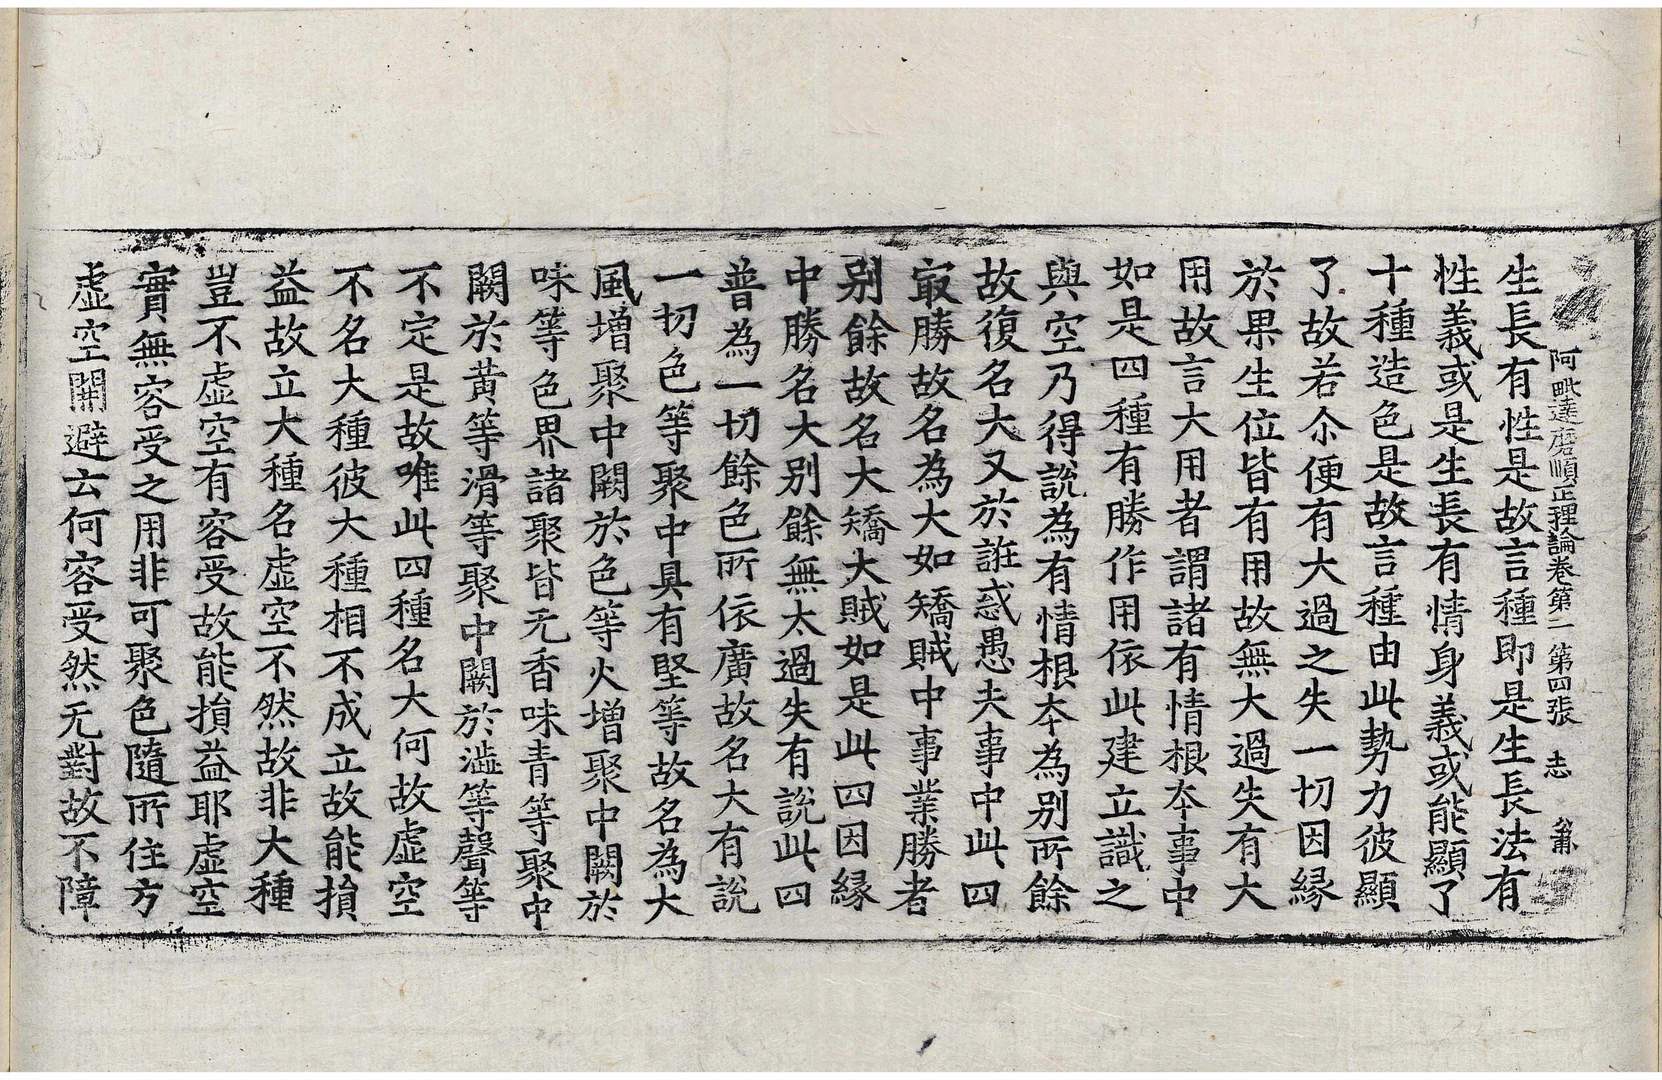 阿毗達磨順正理論卷第二　第四張　志
生長有性是故言種即是生長法有
性義或是生長有情身義或能顯了
十種造色是故言種由此勢力彼顯
了故若尒便有大過之失一切因緣
於果生位皆有用故無大過失有大
用故言大用者謂諸有情根本事中
如是四種有勝作用依此建立識之
與空乃得說為有情根本為別所餘
故復名大又於誑惑愚夫事中此四
㝡勝故名為大如矯賊中事業勝者
別餘故名大矯大賊如是此四因緣
中勝名大別餘無太過失有說此四
普為一切餘色所依廣故名大有說
一切色等聚中具有堅等故名為大
風增聚中闕於色等火增聚中闕於
味等色界諸聚皆无香味青等聚中
闕於黃等滑等聚中闕於澁等聲等
不定是故唯此四種名大何故虛空
不名大種彼大種相不成立故能損
益故立大種名虛空不然故非大種
豈不虛空有容受故能損益耶虛空
實無容受之用非可聚色隨所住方
虛空開避去何容受然无對故不障